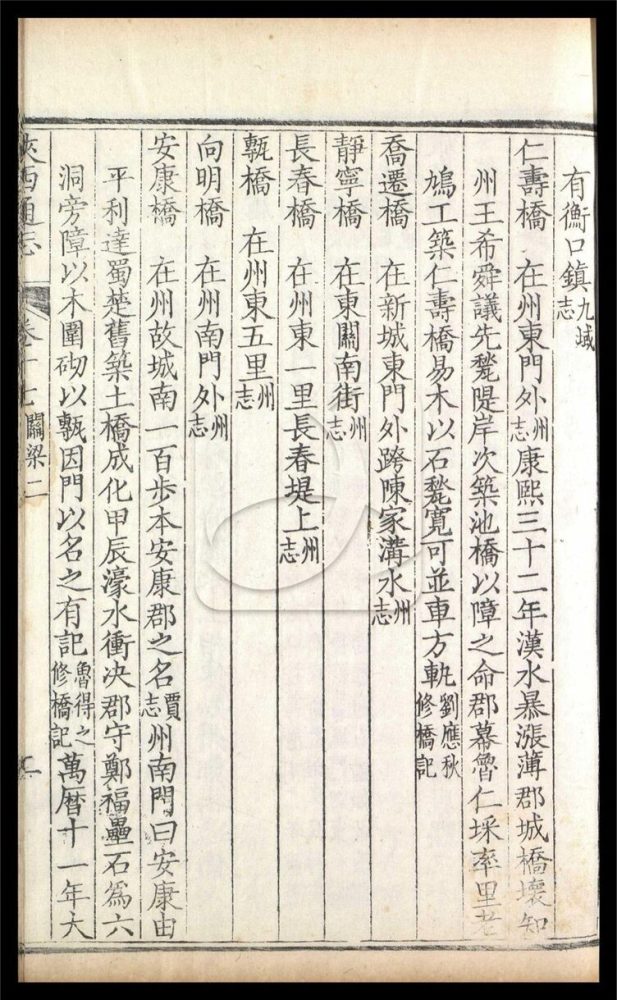 有衡口鎮九域志
仁壽橋 在州東門外州志康熙三十二年漢水暴漲薄郡城橋壞知
州王希舜議先甃隄岸次築池橋以障之命郡幕魯仁埰率里老
鳩工築仁壽橋易木以石甃寬可並車方軌劉應秋修橋記
喬遷橋 在新城東門外跨陳家溝水州志
靜寧橋 在東關南街州志
長春橋 在州東一里長春堤上州志
甎橋 在州東五里州志
向明橋 在州南門外州志
安康橋 在州故城南一百步本安康郡之名賈志州南門曰安康由
平利達蜀楚舊築土橋成化甲辰濠水衝决郡守鄭福壘石為六
洞旁障以木圍砌以甎因門以名之有記魯得之修橋記萬曆十一年大
陝西通志 卷十七 關梁二